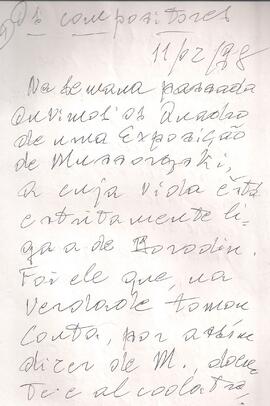 Os compositores
11/02/98
Na semana passada
ouvimos os Quadros
de uma Exposição
de Mussorgski,
a cuja vida está
estritamente li-
gada a de Borodin.
Foi ele que, na
verdade tomou
conta, por assim
dizer de M., doen-
te e alcoólatra,